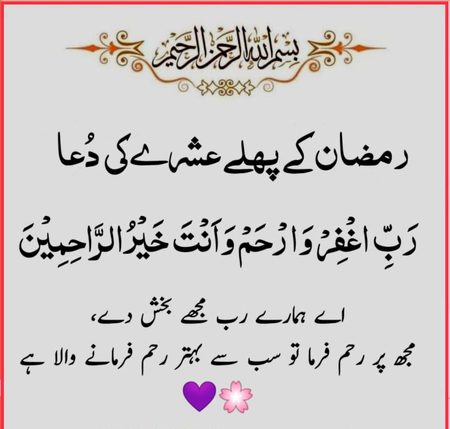 بسم الله الرحمن الرحيم
رمضان کے پہلے عشرے کی دُعا
رَبِّ اغْفِرْ وَارْحَمْ وَاَنْتَ خَيْرُ الرَّاحِمِيْنَ
اے ہمارے رب مجھے بخش دے،
مجھ پر رحم فرما تو سب سے بہتر رحم فرمانے والا ہے
💜🌸